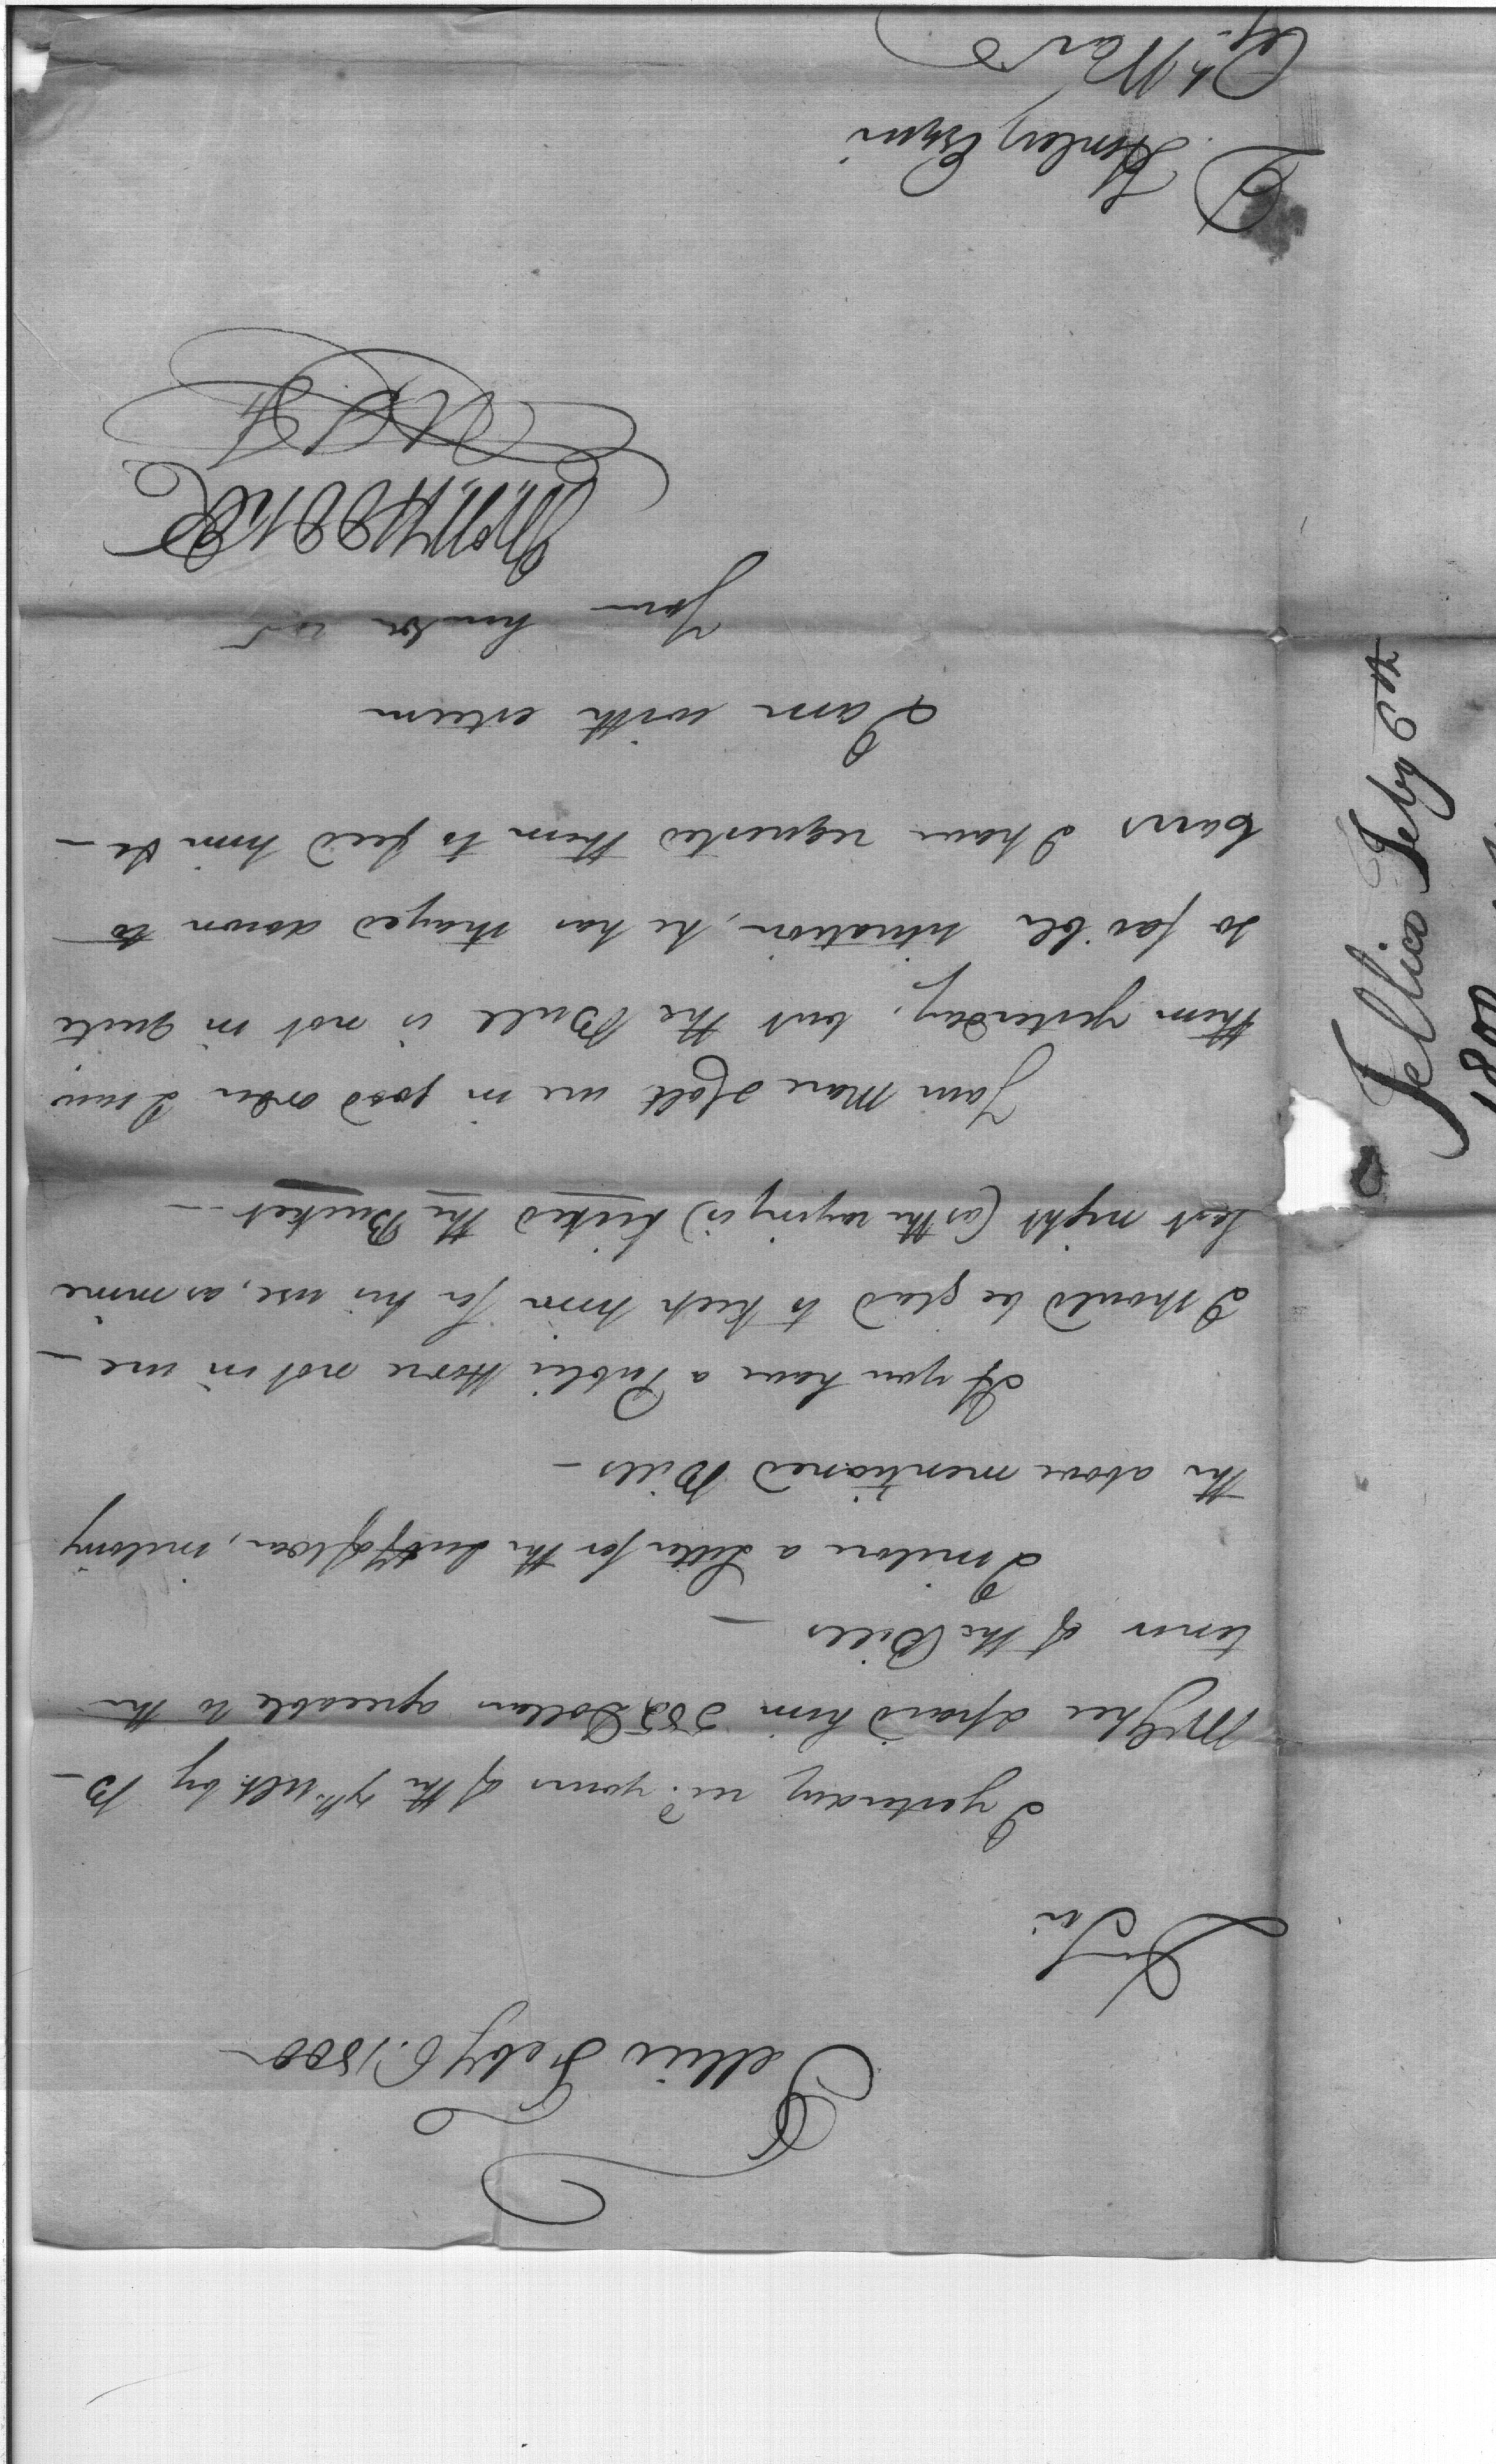 Tellico Feby 6. 1800
Dr Sir
I yesterday recd. yours of the 7th. ult. by B
McGhee & paid him 282 Dollars agreeable to the
tenor of the Bills
I inclose a Letter for the , inclosing
the above mentioned Bills
If you have a Public Horse not in use
I should be glad to keep him for his use, as mine
last night (as the saying is) kicked the Bucket
Your Mare & Colt are in good order I saw
them yesterday, but the Bull is not in quite
so fav'ble situation, he has strayed down to
I have requested them to feed him &c
I am with esteem
Your humble svt
D. Henley Esquire
Agt. War D
Tellico Feby 6th
1800